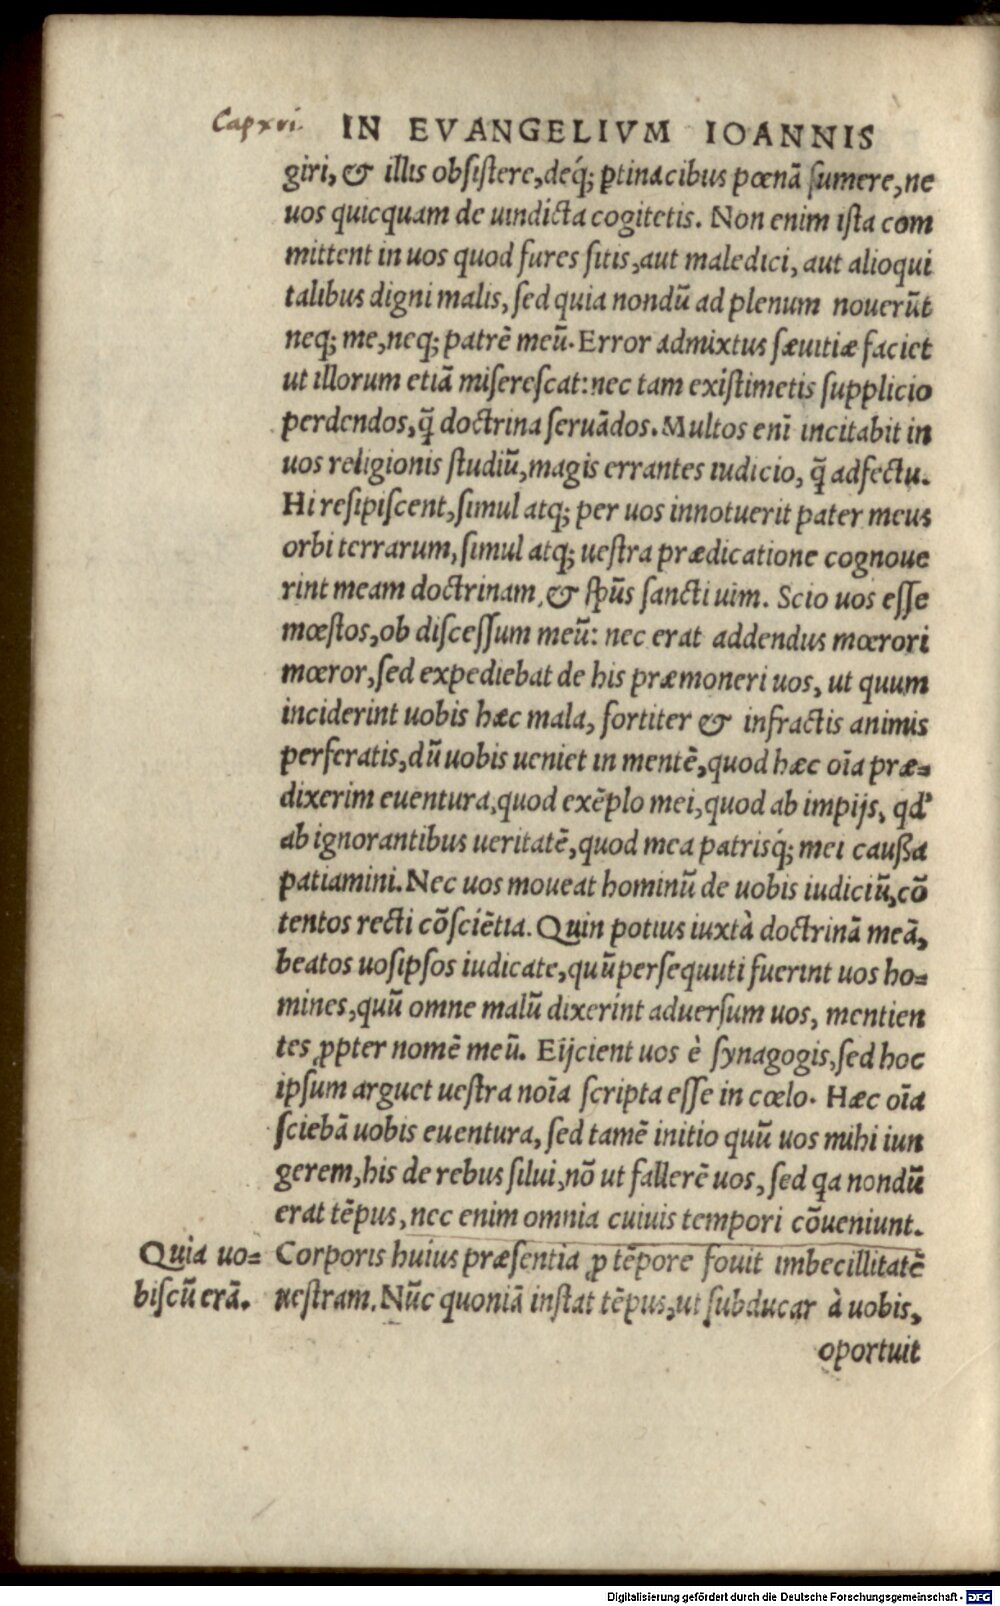 Cap xvi.
IN EVANGELIVM IOANNIS
giri, & illis obsistere, deq́; ꝑtinacibus pœnā sumere, ne
uos quicquam de uindicta cogitetis. Non enim ista com
mittent in uos quod fures sitis, aut maledici, aut alioqui
talibus digni malis, sed quia nondū ad plenum nouerūt
neq; me, neq; patrē meū. Error admixtus sæuitiæ faciet
ut illorum etiā miserescat: nec tam existimetis supplicio
perdendos, q̄ doctrina seruādos. Multos enī incitabit in
uos religionis studiū, magis errantes iudicio, q̄ adfectu.
Hi resipiscent, simul atq; per uos innotuerit pater meus
orbi terrarum, simul atq; uestra prædicatione cognoue
rint meam doctrinam, & sp̄us sancti uim. Scio uos esse
mœstos, ob discessum meū: nec erat addendus mœrori
mœror, sed expediebat de his præmoneri uos, ut quum
inciderint uobis hæc mala, fortiter & infractis animis
perferatis, dū uobis ueniet in mentē, quod hæc oīa præ=
dixerim euentura, quod exēplo mei, quod ab impijs, qd'
ab ignorantibus ueritatē, quod mea patrisq́; mei caußa
patiamini. Nec uos moueat hominū de uobis iudiciū, cō
tentos recti cōsciētia. Quin potius iuxtà doctrinā meā,
beatos uosipsos iudicate, quū persequuti fuerint uos ho=
mines, quū omne malū dixerint aduersum uos, mentien
tes ꝓpter nomē meū. Eijcient uos è synagogis, sed hoc
ipsum arguet uestra noīa scripta esse in cœlo. Hæc oīa
sciebā uobis euentura, sed tamē initio quū uos mihi iun
gerem, his de rebus silui, nō ut fallerē uos, sed qa nondū
erat tēpus, nec enim omnia cuiuis tempori cōueniunt.
Quia uo= Corporis huius præsentia ꝓ tēpore fouit imbecillitatē
biscū erā. uestram. Nūc quoniā instat tēpus, ut subducar à uobis,
oportuit
Digitalisierung gefördert durch die Deutsche Forschungsgemeinschaft - DFG